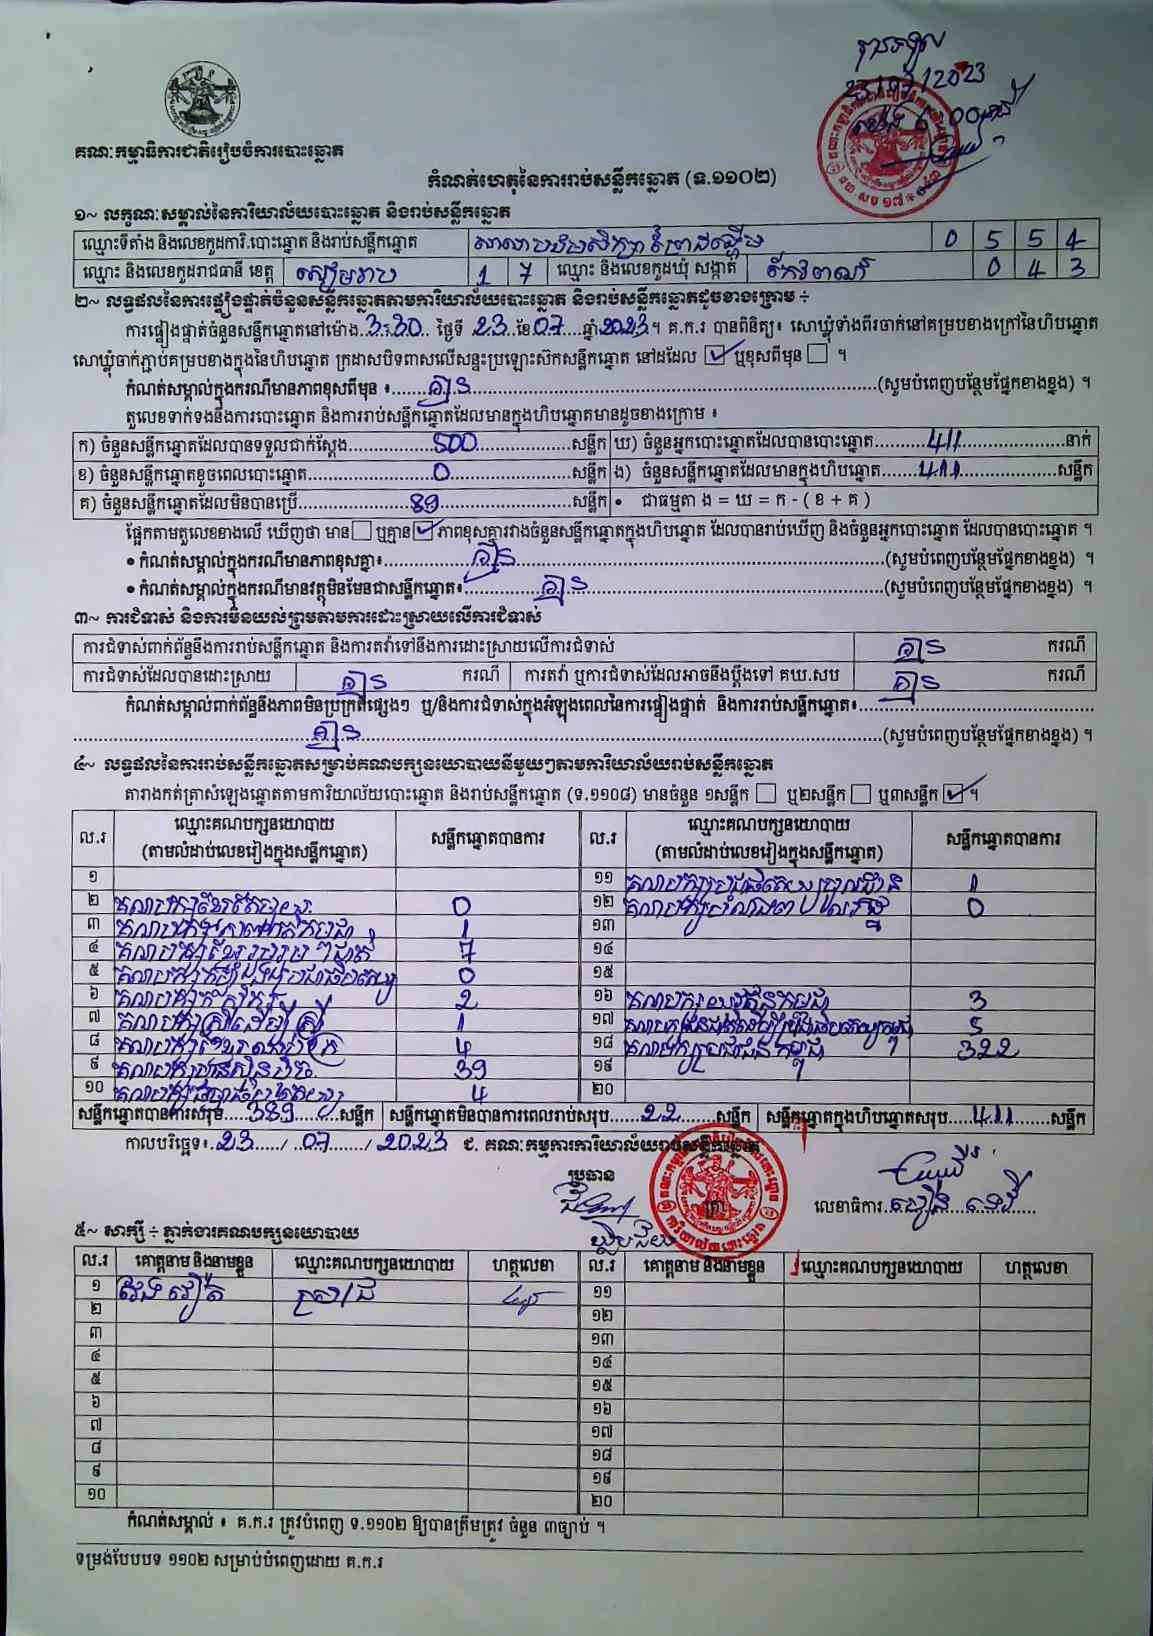 បានទទួល
23/07/2023
ម៉ោង 6:00
គណៈកម្មាធិការជាតិរៀបចំការបោះឆ្នោត
កំណត់ហេតុនៃការរាប់សន្លឹកឆ្នោត (ទ.១១០២)
១~ លក្ខណៈសម្គាល់នៃការិយាល័យបោះឆ្នោត និងរាប់សន្លឹកឆ្នោត
ឈ្មោះទីតាំង និងលេខកូដការិ.បោះឆ្នោត និងរាប់សន្លឹកឆ្នោត សាលាបឋមសិក្សា 0 5 5 4
ឈ្មោះ និងលេខកូដរាជធានី ខេត្ត សៀមរាប 1 7 ឈ្មោះ និងលេខកូដឃុំ សង្កាត់ កែវពណ៌ 0 4 3
២~ លទ្ធផលនៃការផ្ទៀងផ្ទាត់ចំនួនសន្លឹកឆ្នោតតាមការិយាល័យបោះឆ្នោត និងរាប់សន្លឹកឆ្នោតដូចខាងក្រោម ÷
ការផ្ទៀងផ្ទាត់ចំនួនសន្លឹកឆ្នោតនៅម៉ោង 3:30 ថ្ងៃទី 23 ខែ 07 ឆ្នាំ 2023 ។ គ.ក.រ បានពិនិត្យ៖ សោឃ្លុំទាំងពីរចាក់នៅគម្របខាងក្រៅនៃហិបឆ្នោត
សោឃ្លុំចាក់ភ្ជាប់គម្របខាងក្នុងនៃហិបឆ្នោត ក្រដាសបិទពាសលើសន្ទះប្រឡោះសិកសន្លឹកឆ្នោត នៅដដែល ☑ ឬខុសពីមុន ☐ ។
កំណត់សម្គាល់ក្នុងករណីមានភាពខុសពីមុន ៖ គ្មាន (សូមបំពេញបន្ថែមផ្នែកខាងខ្នង) ។
តួលេខទាក់ទងនឹងការបោះឆ្នោត និងការរាប់សន្លឹកឆ្នោតដែលមានក្នុងហិបឆ្នោតមានដូចខាងក្រោម ៖
ក) ចំនួនសន្លឹកឆ្នោតដែលបានទទួលជាក់ស្តែង 500 សន្លឹក ឃ) ចំនួនអ្នកបោះឆ្នោតដែលបានបោះឆ្នោត 411 នាក់
ខ) ចំនួនសន្លឹកឆ្នោតខូចពេលបោះឆ្នោត 0 សន្លឹក ង) ចំនួនសន្លឹកឆ្នោតដែលមានក្នុងហិបឆ្នោត 411 សន្លឹក
គ) ចំនួនសន្លឹកឆ្នោតដែលមិនបានប្រើ 89 សន្លឹក • ជាធម្មតា ង = ឃ = ក - ( ខ + គ )
ផ្អែកតាមតួលេខខាងលើ ឃើញថា មាន ☐ ឬគ្មាន ☑ ភាពខុសគ្នារវាងចំនួនសន្លឹកឆ្នោតក្នុងហិបឆ្នោត ដែលបានរាប់ឃើញ និងចំនួនអ្នកបោះឆ្នោត ដែលបានបោះឆ្នោត ។
• កំណត់សម្គាល់ក្នុងករណីមានភាពខុសគ្នា៖ គ្មាន (សូមបំពេញបន្ថែមផ្នែកខាងខ្នង) ។
• កំណត់សម្គាល់ក្នុងករណីមានវត្ថុមិនមែនជាសន្លឹកឆ្នោត៖ គ្មាន (សូមបំពេញបន្ថែមផ្នែកខាងខ្នង) ។
៣~ ការជំទាស់ និងការមិនយល់ព្រមតាមការដោះស្រាយលើការជំទាស់
ការជំទាស់ពាក់ព័ន្ធនឹងការរាប់សន្លឹកឆ្នោត និងការតវ៉ាទៅនឹងការដោះស្រាយលើការជំទាស់ គ្មាន ករណី
ការជំទាស់ដែលបានដោះស្រាយ គ្មាន ករណី ការតវ៉ា ឬការជំទាស់ដែលអាចនឹងប្តឹងទៅ គឃ.សប គ្មាន ករណី
កំណត់សម្គាល់ពាក់ព័ន្ធនឹងភាពមិនប្រក្រតីផ្សេងៗ ឬ/និងការជំទាស់ក្នុងអំឡុងពេលនៃការផ្ទៀងផ្ទាត់ និងការរាប់សន្លឹកឆ្នោត៖
គ្មាន (សូមបំពេញបន្ថែមផ្នែកខាងខ្នង) ។
៤~ លទ្ធផលនៃការរាប់សន្លឹកឆ្នោតសម្រាប់គណបក្សនយោបាយនីមួយៗតាមការិយាល័យរាប់សន្លឹកឆ្នោត
តារាងកត់ត្រាសំឡេងឆ្នោតតាមការិយាល័យបោះឆ្នោត និងរាប់សន្លឹកឆ្នោត (ទ.១១០៨) មានចំនួន ១សន្លឹក ☐ ឬ២សន្លឹក ☐ ឬ៣សន្លឹក ☑ ។
ល.រ ឈ្មោះគណបក្សនយោបាយ (តាមលំដាប់លេខរៀងក្នុងសន្លឹកឆ្នោត) សន្លឹកឆ្នោតបានការ ល.រ ឈ្មោះគណបក្សនយោបាយ (តាមលំដាប់លេខរៀងក្នុងសន្លឹកឆ្នោត) សន្លឹកឆ្នោតបានការ
១ ១១ គណបក្ស 1
២ គណបក្ស 0 ១២ គណបក្ស 0
៣ គណបក្ស 1 ១៣
៤ គណបក្សខ្មែររួបរួមជាតិ 7 ១៤
៥ គណបក្ស 0 ១៥
៦ គណបក្សកសិករ 2 ១៦ គណបក្សយុវជនកម្ពុជា 3
៧ គណបក្សស្ត្រីដើម្បីស្ត្រី 1 ១៧ គណបក្ស 5
៨ គណបក្ស 4 ១៨ គណបក្សប្រជាជនកម្ពុជា 322
៩ គណបក្សហ៊្វុនស៊ិនប៉ិច 39 ១៩
១០ គណបក្ស 4 ២០
សន្លឹកឆ្នោតបានការសរុប 389 សន្លឹក សន្លឹកឆ្នោតមិនបានការពេលរាប់សរុប 22 សន្លឹក សន្លឹកឆ្នោតក្នុងហិបឆ្នោតសរុប 411 សន្លឹក
កាលបរិច្ឆេទ៖ 23 / 07 / 2023 ជ. គណៈកម្មការការិយាល័យរាប់សន្លឹកឆ្នោត
ប្រធាន
លេខាធិការ
៥~ សាក្សី ÷ ភ្នាក់ងារគណបក្សនយោបាយ
ល.រ គោត្តនាម និងនាមខ្លួន ឈ្មោះគណបក្សនយោបាយ ហត្ថលេខា ល.រ គោត្តនាម និងនាមខ្លួន ឈ្មោះគណបក្សនយោបាយ ហត្ថលេខា
១ ១១
២ ១២
៣ ១៣
៤ ១៤
៥ ១៥
៦ ១៦
៧ ១៧
៨ ១៨
៩ ១៩
១០ ២០
កំណត់សម្គាល់ ៖ គ.ក.រ ត្រូវបំពេញ ទ.១១០២ ឱ្យបានត្រឹមត្រូវ ចំនួន ៣ច្បាប់ ។
ទម្រង់បែបបទ ១១០២ សម្រាប់បំពេញដោយ គ.ក.រ